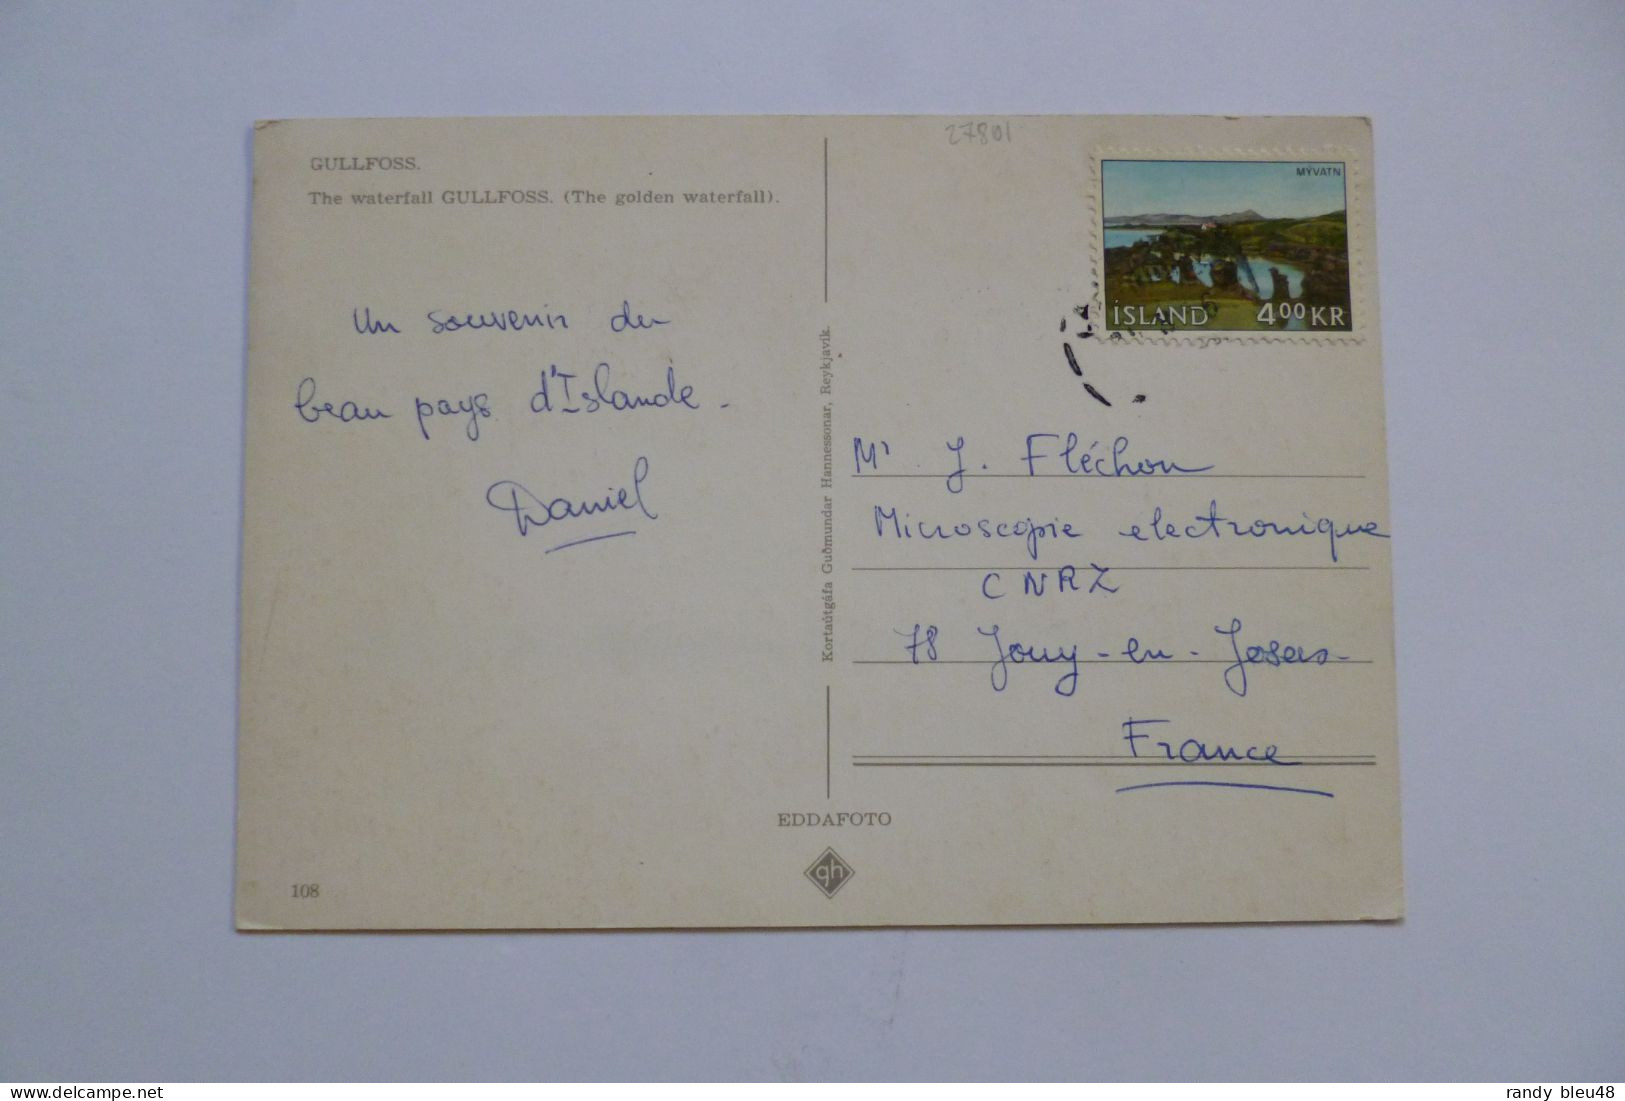 GULLFOSS.
The waterfall GULLFOSS. (The golden waterfall).
Un souvenir du
beau pays d'Islande.
Daniel
108
Kortaútgáfa Guðmundar Hannessonar, Reykjavík.
EDDAFOTO
gh
27801
MÝVATN
ÍSLAND 4⁰⁰ KR
Mr J. Fléchon
Microscopie electronique
CNRZ
78 Jouy-en-Josas
France
randy bleu48